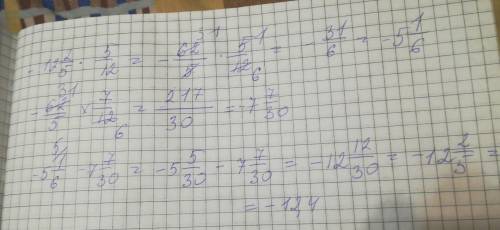 -12 2/5 · 5/12 = - 62/5 · 5/12 = - 31/6 = -5 1/6
- 62/5 × 7/12 = 217/30 = -7 7/30
-5 1/6 - 7 7/30 = -5 5/30 - 7 7/30 = -12 12/30 = -12 2/5 =
= -12,4